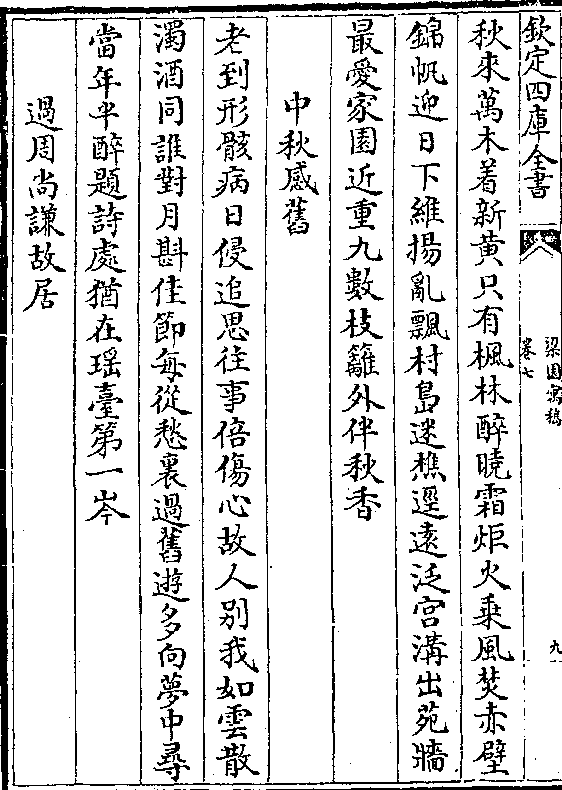 欽定四庫全書
梁園寓稿
卷七
九
秋來萬木着新黄只有楓林醉曉霜炬火乗風焚赤壁
錦帆迎日下維揚亂飄村島迷樵逕逺泛宫溝出苑牆
最愛家園近重九數枝籬外伴秋香
中秋感舊
老到形骸病日侵追思往事倍傷心故人别我如雲散
濁酒同誰對月斟佳節每從愁裏過舊遊多向夢中尋
當年半醉題詩處猶在瑶臺第一岑
過周尚謙故居